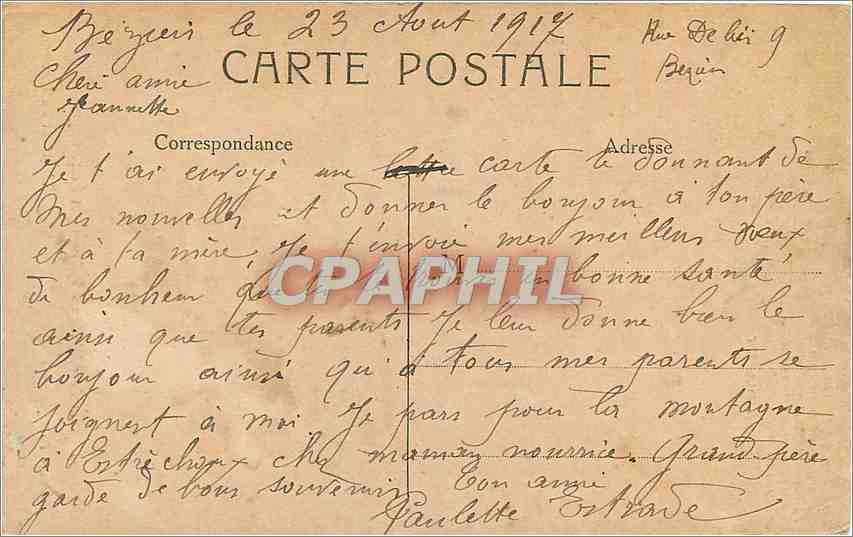 Béziers le 23 Aout 1917
Rue De 9
Beziers
Cheré amie
Jeannette
CARTE POSTALE
Correspondance
Adresse
Je t'ai envoyé une carte te donnant de
mes nouvelles et donner le bonjour à ton père
et à ta mère, Je t'envoie mes meilleurs vœux
M
de bonheur que tu en bonne santé
CPAPHIL
ainsi que tes parents Je leur donne bien le
bonjour ainsi qu'à tous mes parents se
joignent à moi. Je pars pour la montagne
à Estréchoux chez maman nourrice. Grand-père
garde de bons souvenirs Ton amie
Paulette Estrade